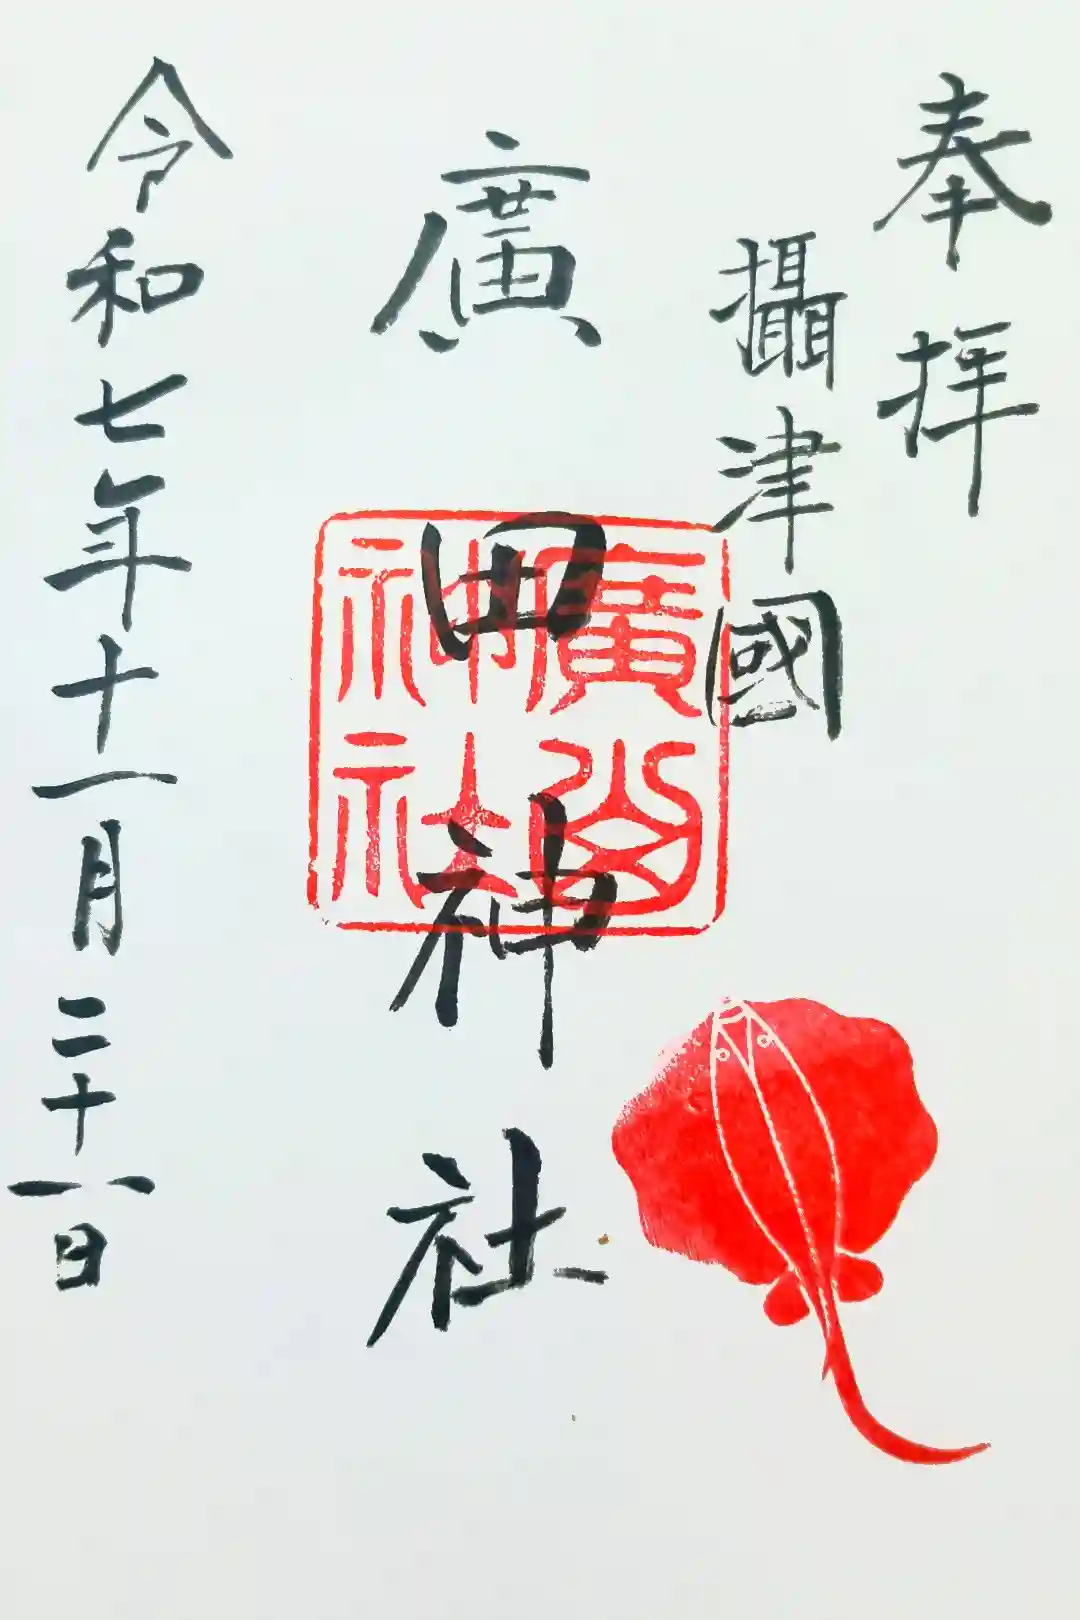 奉拝
攝津國
廣田神社
廣
神社
令和七年十一月二十八日